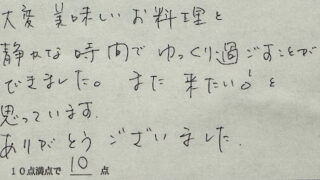 大変美味しいお料理と
静かな時間でゆっくり過ごすことが
できました。また来たいなと
思っています。
ありがとうございました。
10点満点で 10 点